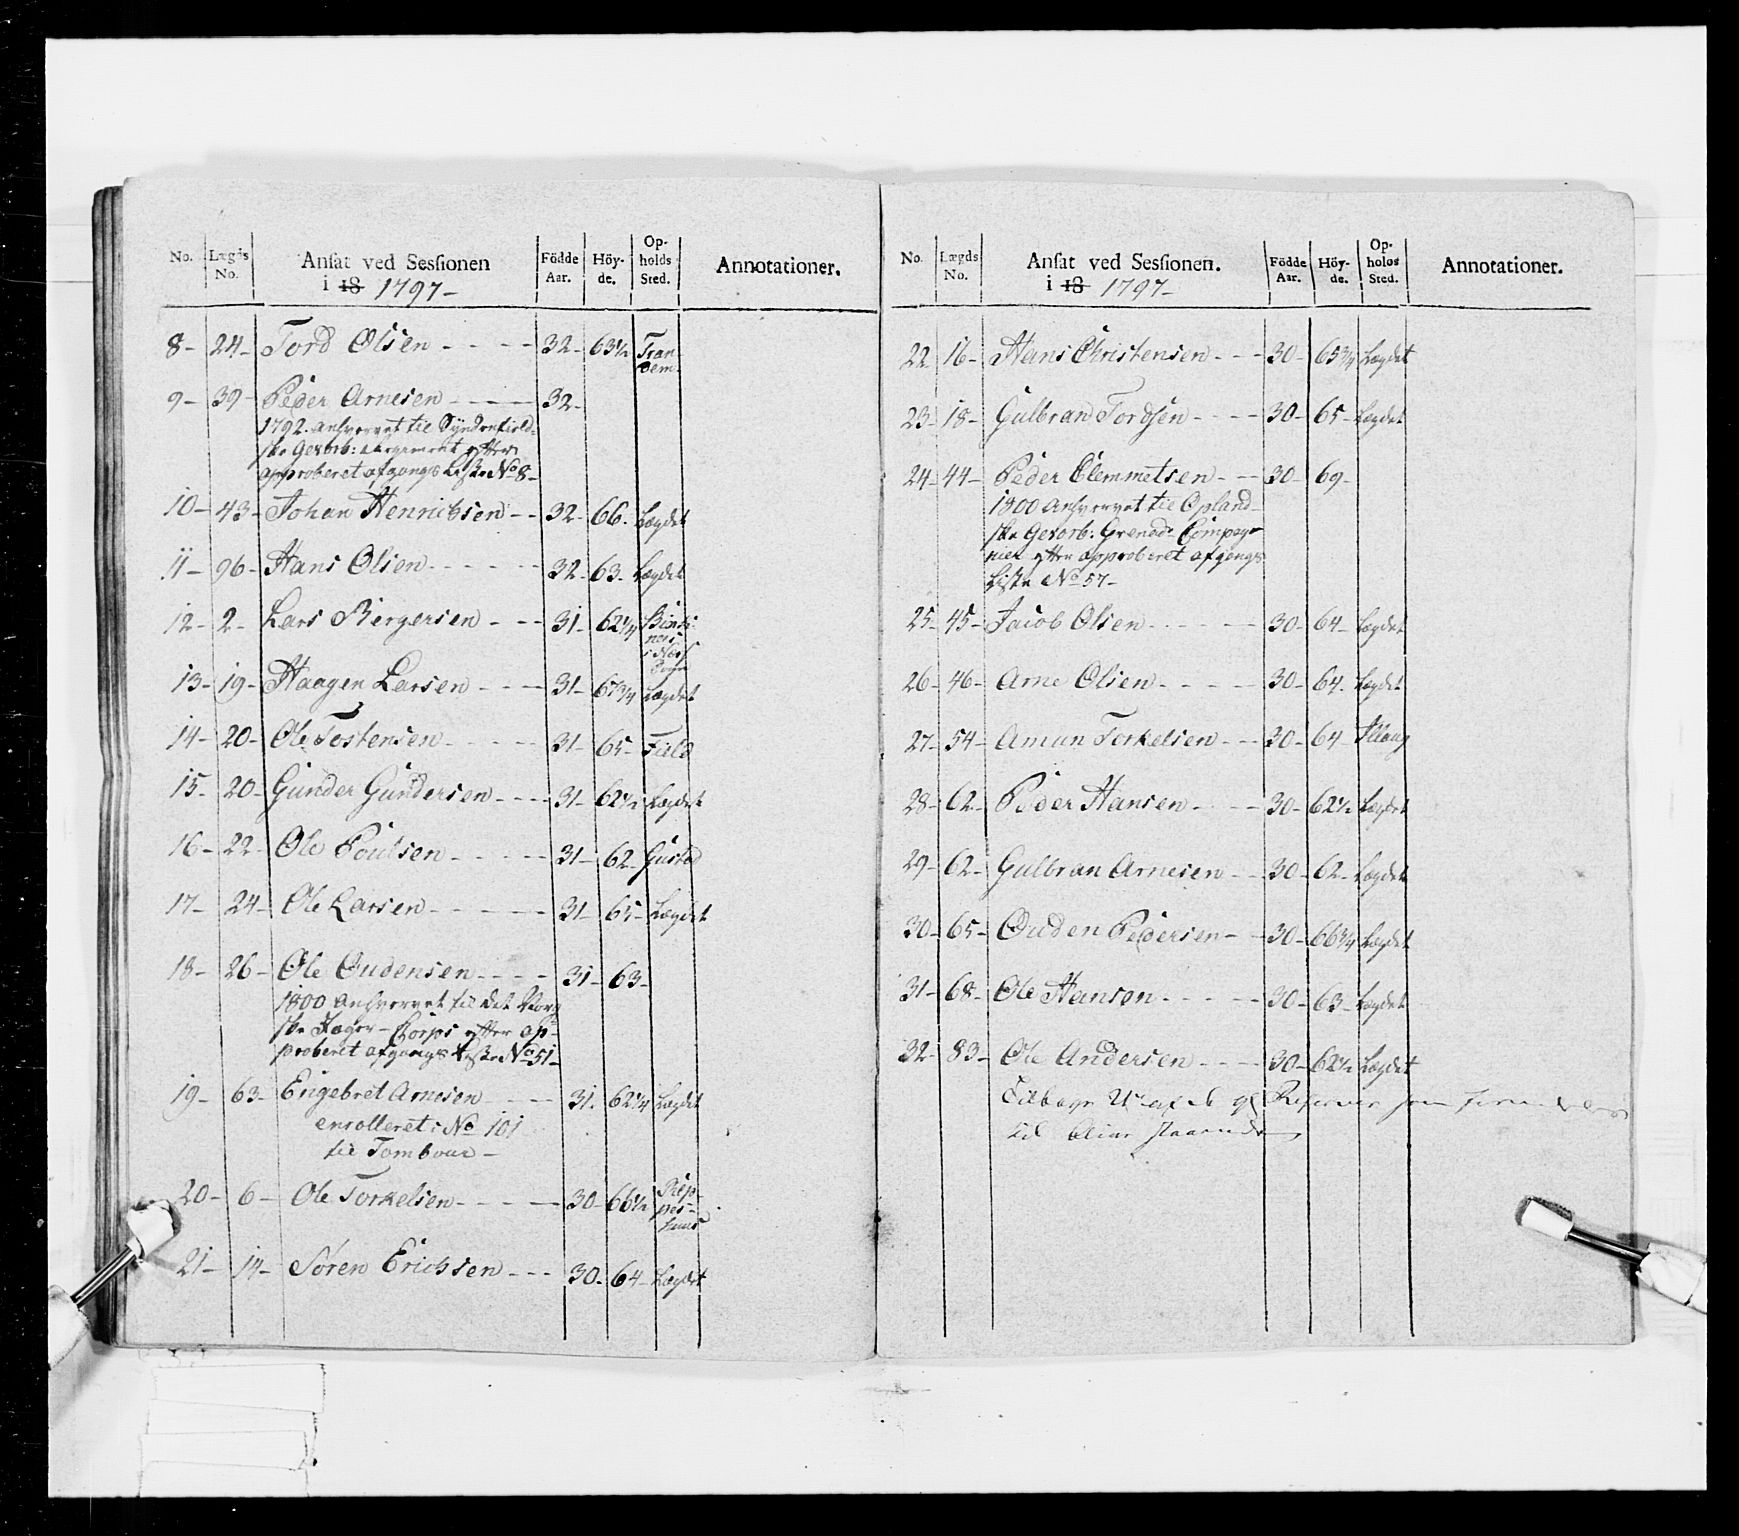 No. Lægds No. Ansat ved Sessionen i 18 1797- Födde Aar. Höy-de. Op-holds Sted. Annotationer.
8- 24- Tord Olsen - - - - 32- 63½ Tran
dem.
9- 39- Peder Arnesen - - - - 32-
1792. anhvervet til Syndenfield-
ske Gevorb: Regement efter
approberet afgangs Liste No 8-
10- 43- Johan Henrichsen - - 32- 66. Lægdet
11- 96- Hans Olsen - - - - - 32- 63- Lægdet
12- 2- Lars Birgersen - - - 31- 62¼
13- 19- Haagen Larsen - - - 31- 67¾ Lægdet
14- 20- Ole Tostensen - - - - 31- 65- Fald
15- 20- Gunder Gundersen - - - 31- 62½ Lægdet
16- 22- Ole Poulsen - - - - 31- 62- Gusta
17- 24- Ole Larsen - - - - - 31- 65- Lægdet
18- 26- Ole Oudensen - - - - 31- 63-
1800 anhvervet til det Norg
ske Jæger-Corps efter ap-
proberet afgangs Liste No 51-
19- 63- Engebret Arnesen - - - 31. 62¼ Lægdet
enrolleret: No 101
til Tombour-
20- 6- Ole Torkelsen - - - - 30- 66½
21- 14- Søren Erichsen - - - 30- 64- Lægdet
No. Lægds No. Ansat ved Sessionen. i 18 1797- Födde Aar. Höy-de. Op-holds Sted. Annotationer.
22 16- Hans Christensen - - - 30- 65¾ Lægdet
23- 18- Gulbran Tordsen - - - - 30- 65- Lægdet
24- 44- Peder Clemmetsen - - - 30- 69-
1800 anhvervet til Opland-
ske Gevorb: Grenad: Compag-
nier efter approberet afgangs
Liste No 57-
25- 45- Jacob Olsen - - - - - 30- 64- Lægdet
26- 46- Arne Olsen - - - - 30- 64. Lægdet
27- 54- Amun Torkelsen - - - 30- 64-
28- 62- Peder Hansen - - - - 30- 62½ Lægdet
29- 62- Gulbran Arnesen - - 30- 62- Lægdet
30- 65- Ouden Pedersen - - 30- 66¾ Lægdet
31- 68- Ole Hansen - - - - - 30- 63- Lægdet
32- 83- Ole Andersen - - - - 30- 62½ Lægdet